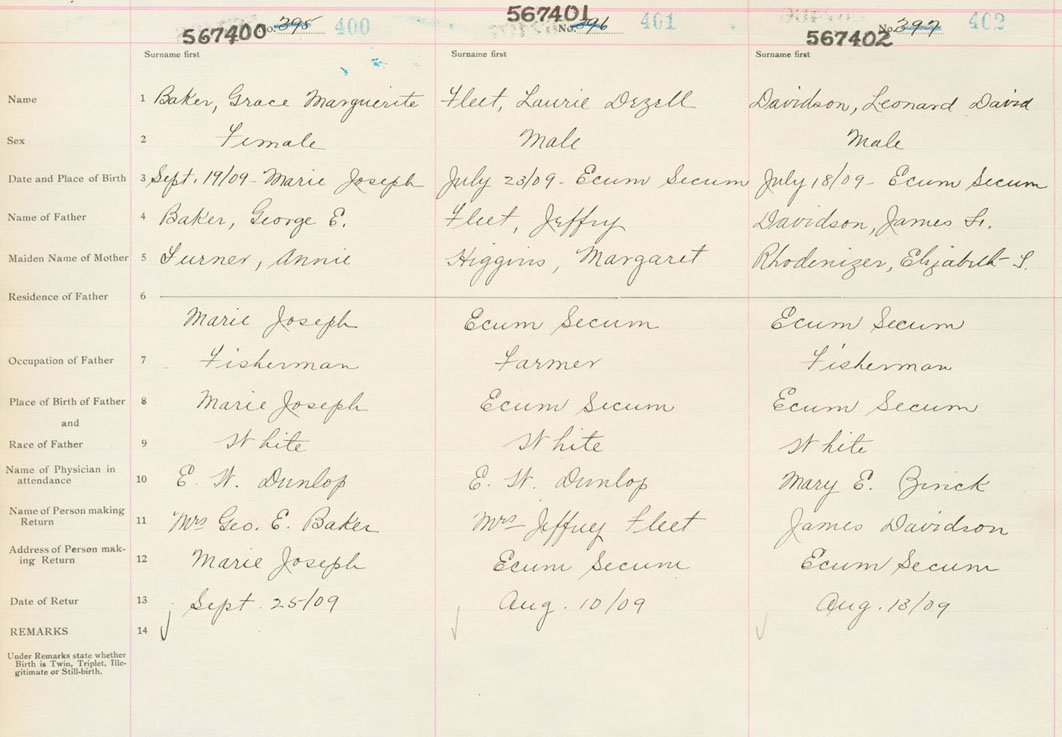 567400 No. 395 400
567401 No. 396 401
567402 No. 397 402
Surname first Surname first Surname first
Name 1 Baker, Grace Marguerite Fleet, Laurie Dezell Davidson, Leonard David
Sex 2 Female Male Male
Date and Place of Birth 3 Sept. 19/09 - Marie Joseph July 23/09 - Ecum Secum July 18/09 - Ecum Secum
Name of Father 4 Baker, George E. Fleet, Jeffry Davidson, James
Maiden Name of Mother 5 Turner, Annie Higgins, Margaret Rhodenizer, Elizabeth
Residence of Father 6
Marie Joseph Ecum Secum Ecum Secum
Occupation of Father 7 Fisherman Farmer Fisherman
Place of Birth of Father 8 Marie Joseph Ecum Secum Ecum Secum
and
Race of Father 9 White White White
Name of Physician in
attendance 10 E. W. Dunlop E. W. Dunlop Mary E. Zinck
Name of Person making
Return 11 Mrs Geo. E. Baker Mrs Jeffrey Fleet James Davidson
Address of Person mak-
ing Return 12 Marie Joseph Ecum Secum Ecum Secum
Date of Retur 13 Sept. 25/09 Aug. 10/09 Aug. 13/09
REMARKS 14
Under Remarks state whether
Birth is Twin, Triplet, Ille-
gitimate or Still-birth.